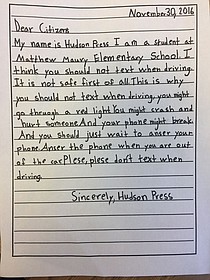 November 30, 2016
Dear Citizens
My name is Hudson Press I am a student at
Matthew Maury Elementary School I
think you should not text when driving.
It is not safe first of all This is why
you should not text when driving. you might
go through a red light You might crash and
hurt someone And your phone might break
And you should just wait to anser your
phone. Anser the phone when you are out
of the car Plese, plese don't text when
driving.
Sincerely, Hudson Press